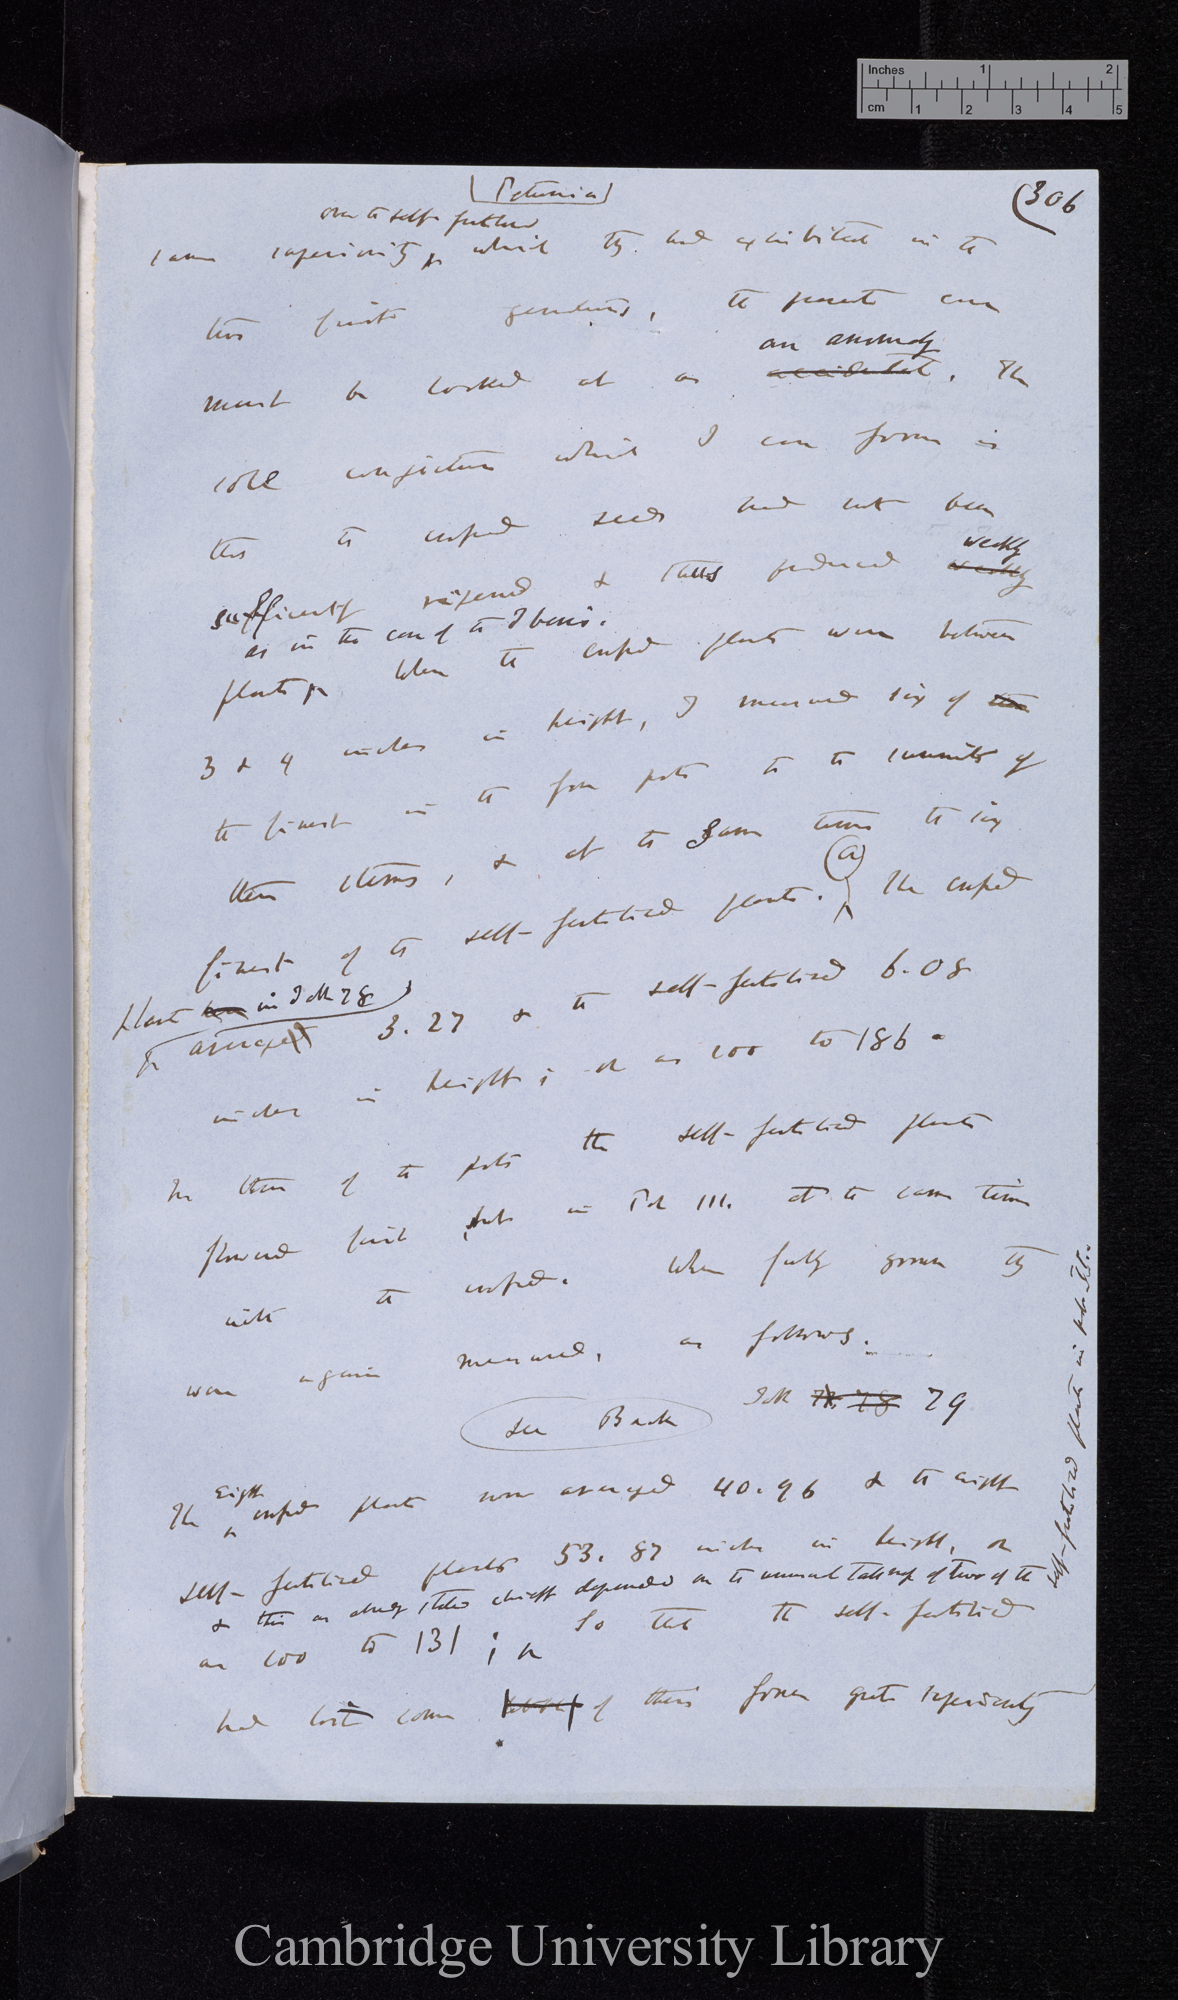 Inches 1 2
cm 1 2 3 4 5
Petunia
306
over to self-fertilised
same superiority, which they had exhibited in the
two first generations, the present case
an anomaly
must be looked at as accidental. The
sole conjecture which I can form is
that the crossed seeds had not been
weakly
sufficiently ripened & thus produced weakly
as in the case of the Iberis.
plants When the crossed plants were between
3 & 4 inches in height, I measured six of the
the finest in the four pots to the summits of
their stems, & at the same time the six
(a)
finest of the self-fertilised plants. The crossed
plants in Tab 78
averaged 3.27 & the self-fertilised 6.08
inches in height; or as 100 to 186.
In three of the pots the self-fertilised plants
flowered first, but in Pot III. at the same time
with the crossed. When fully grown they
were again measured, as follows:
see Back Tab 77. 78 79
Eight
The crossed plants now averaged 40.96 & the eight
self-fertilised plants 53.87 inches in height, or
& this as already stated chiefly depended on the unusual tallness of two of the
self-fertilised plants in pot III.
as 100 to 131; So that the self-fertilised
had lost some of their former great superiority
Cambridge University Library